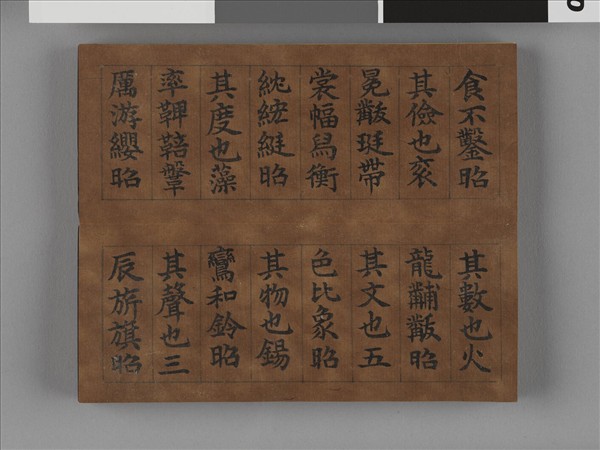 食不鑿昭
其儉也衮
冕黻珽帶
裳幅舄衡
紞紘綖昭
其度也藻
率鞞鞛鞶
厲游纓昭
其數也火
龍黼黻昭
其文也五
色比象昭
其物也鍚
鸞和鈴昭
其聲也三
辰旂旗昭